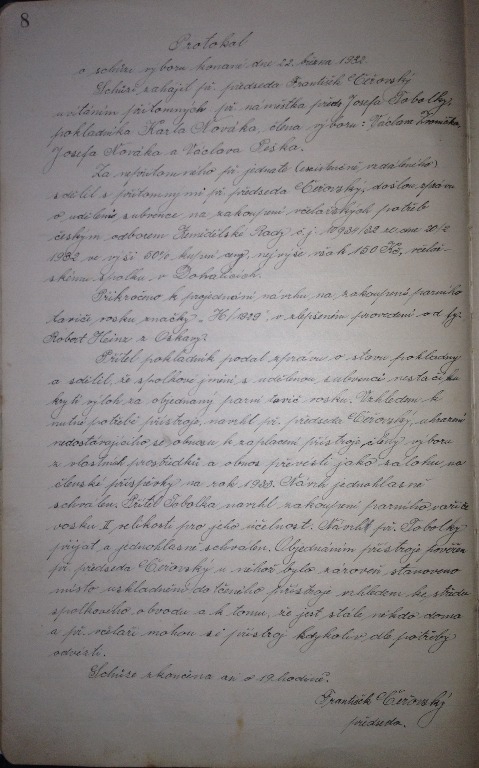 8
Protokol
o schůzi výboru konané dne 22. března 1932.
Schůzi zahájil př. předseda František Čeřovský
uvítáním přítomných př. náměstka předs. Josefa Tobolky,
pokladníka Karla Nováka, člena výboru: Václava
Josefa Nováka a Václava Peška.
Za nepřítomného př. jednatele (existenčně vzdáleného)
sdělil s přítomnými př. předseda Čeřovský, došlou zprávu
o udělení subvence na zakoupení včelařských potřeb
českým odborem Zemědělské Rady č.j. 10984/32 ze dne 20/2
1932 ve výši 50% kupní ceny, nejvýše však 150 Kč, včelař-
skému spolku v Dohalicích.
Přikročeno k projednání návrhu na zakoupení parního
taviče vosku značky „H/1929", v zlepšeném provedení od fy.
Robert Heinz z Oskavy.
Přítel pokladník podal zprávu o stavu pokladny
a sdělil, že spolkové jmění s udělenou subvencí nestačí ku
krytí výloh za objednaný parní tavič vosku. Vzhledem k
nutné potřebě přístroje, navrhl př. předseda Čeřovský, uhrazení
nedostávajícího se obnosu k zaplacení přístroje, členy výboru
z vlastních prostředků a obnos převésti jako zálohu na
členské příspěvky na rok 1933. Návrh jednohlasně
schválen. Přítel Tobolka navrhl zakoupení parního vařiče
vosku II. velikosti pro jeho účelnost. Návrh př. Tobolky
přijat a jednohlasně schválen. Objednáním přístroje pověřen
př. předseda Čeřovský u něhož bylo zároveň stanoveno
místo uskladnění dotčeného přístroje vzhledem ke středu
spolkového obvodu a k tomu, že jest stále někdo doma
a př. včelaři mohou si přístroj kdykoliv dle potřeby
odvézti.
Schůze skončena asi o 19 hodině.
František Čeřovský
předseda.